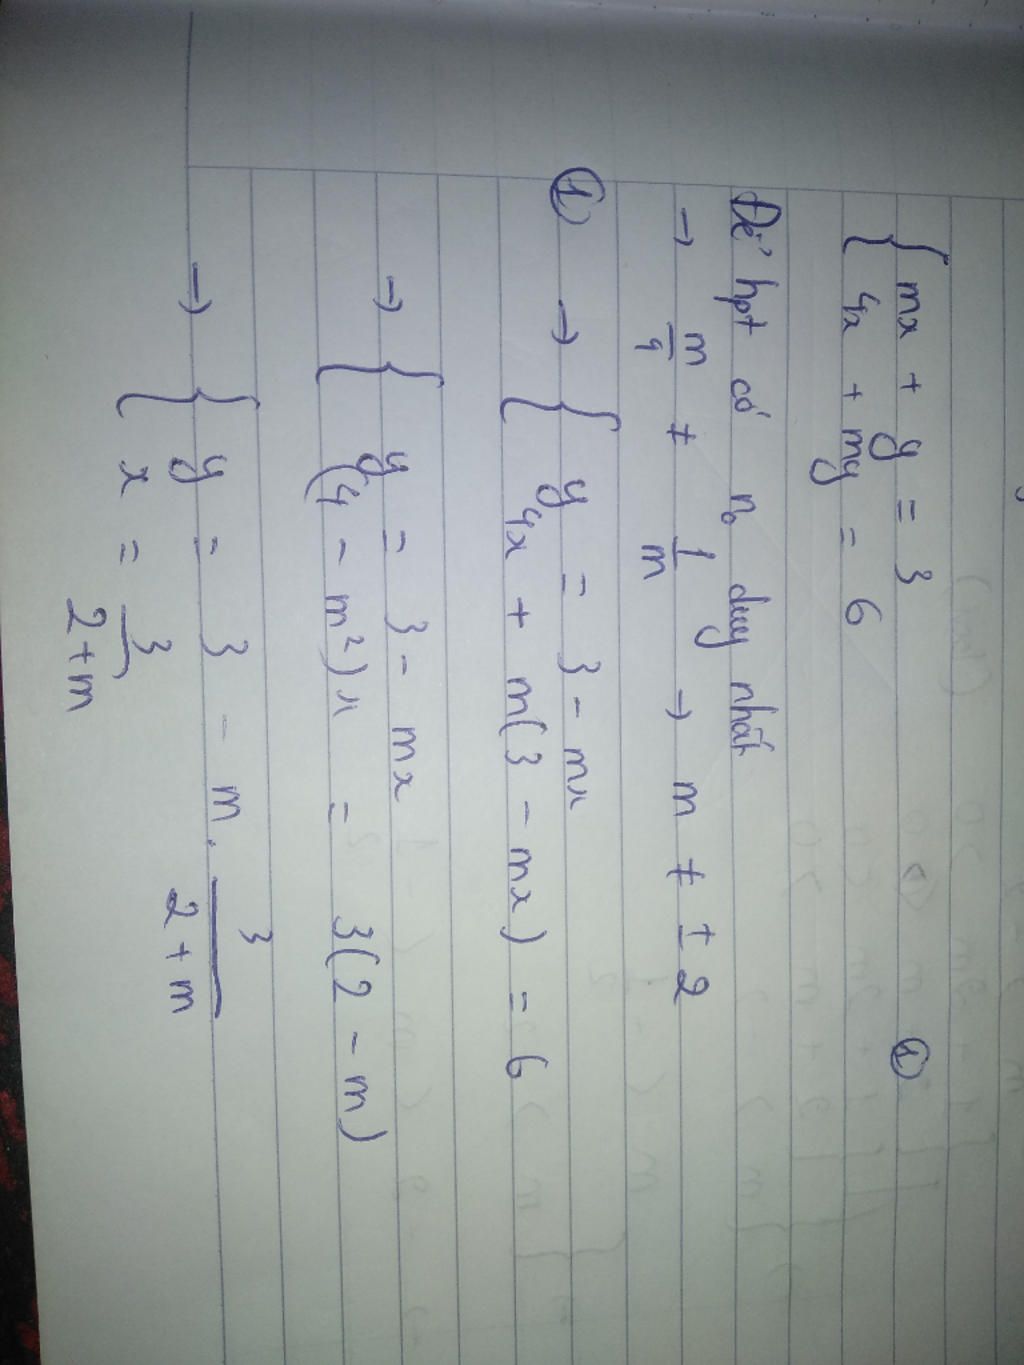 { mx + y = 3 ①
4x + my = 6
Để hpt có n₀ duy nhất
→ m/4 ≠ 1/m → m ≠ ± 2
① → { y = 3 - mx
4x + m(3 - mx) = 6
→ { y = 3 - mx
(4 - m²)x = 3(2 - m)
→ { y = 3 - m. 3/2 + m
x = 3/2+m